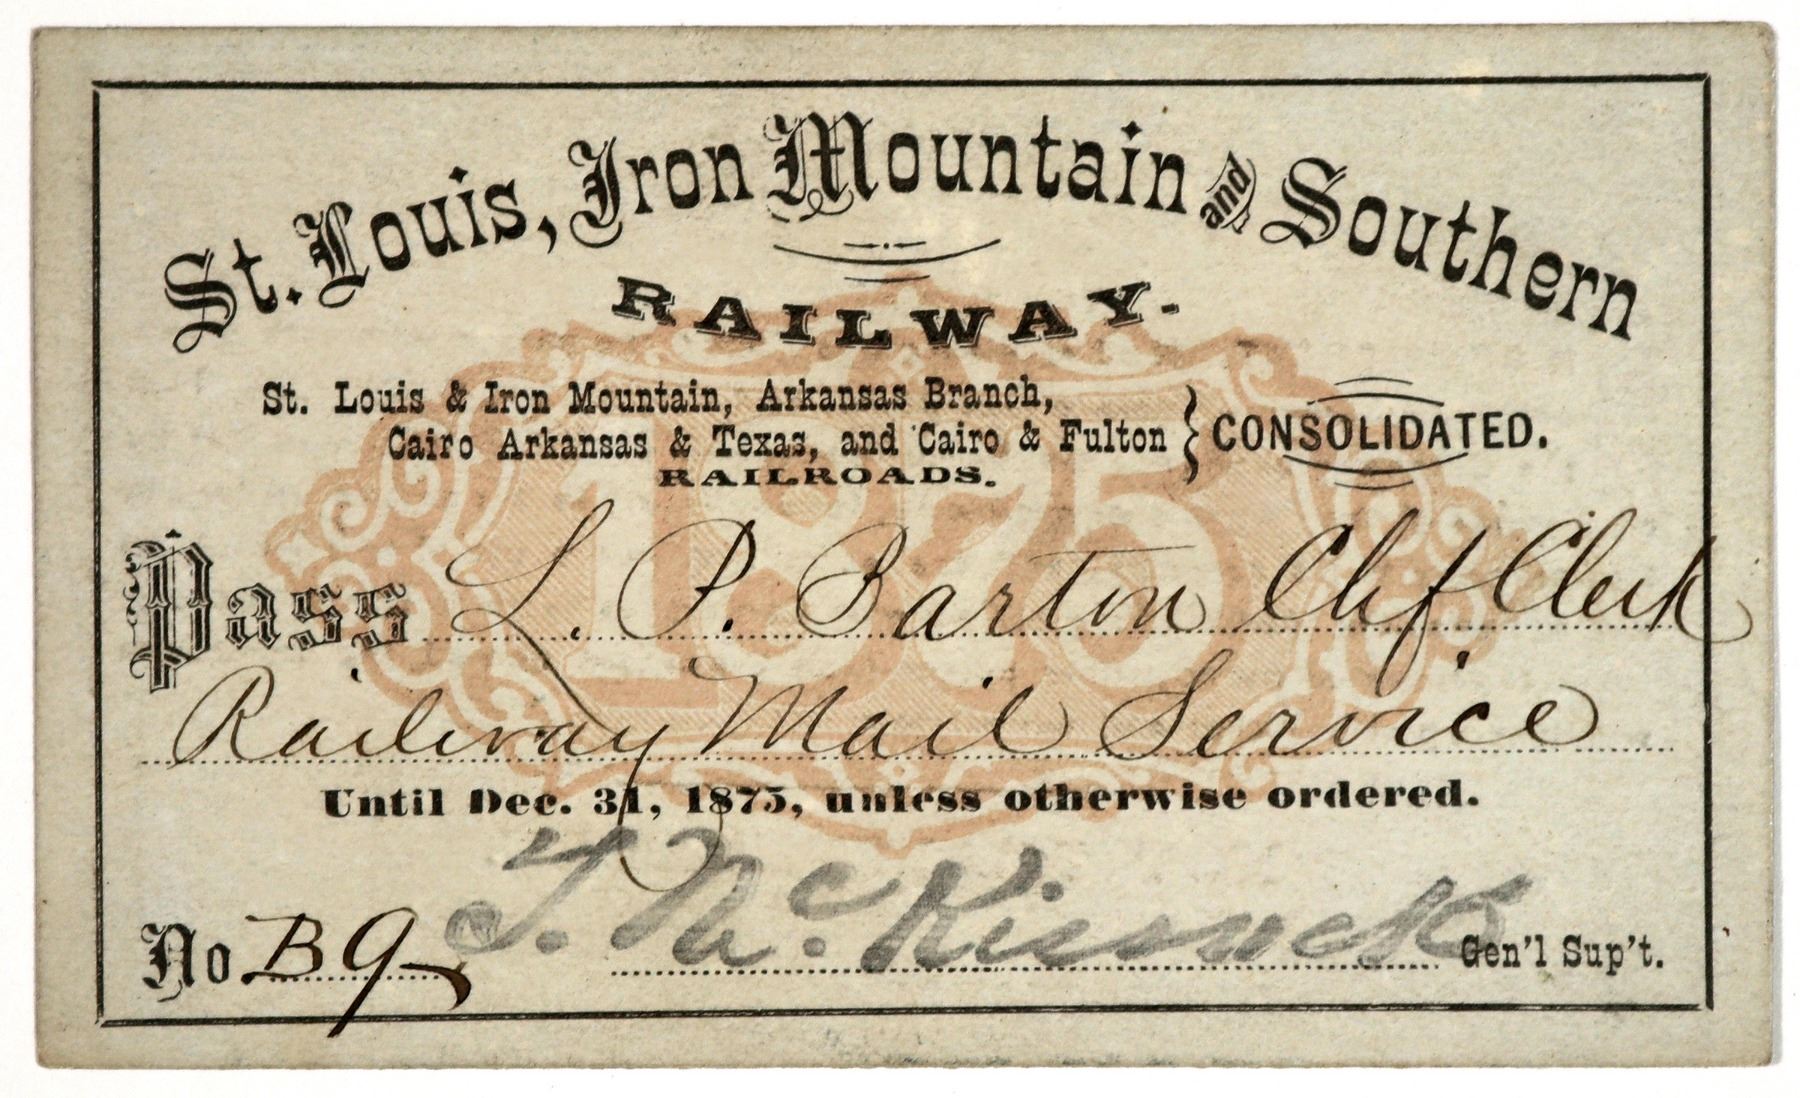 St. Louis, Iron Mountain and Southern
RAILWAY.
St. Louis & Iron Mountain, Arkansas Branch,
Cairo Arkansas & Texas, and Cairo & Fulton } CONSOLIDATED.
RAILROADS.
1875
Pass L. P. Barton Chf Clerk
Railway Mail Service
Until Dec. 31, 1875, unless otherwise ordered.
No B9 T. McKissock Gen'l Sup't.